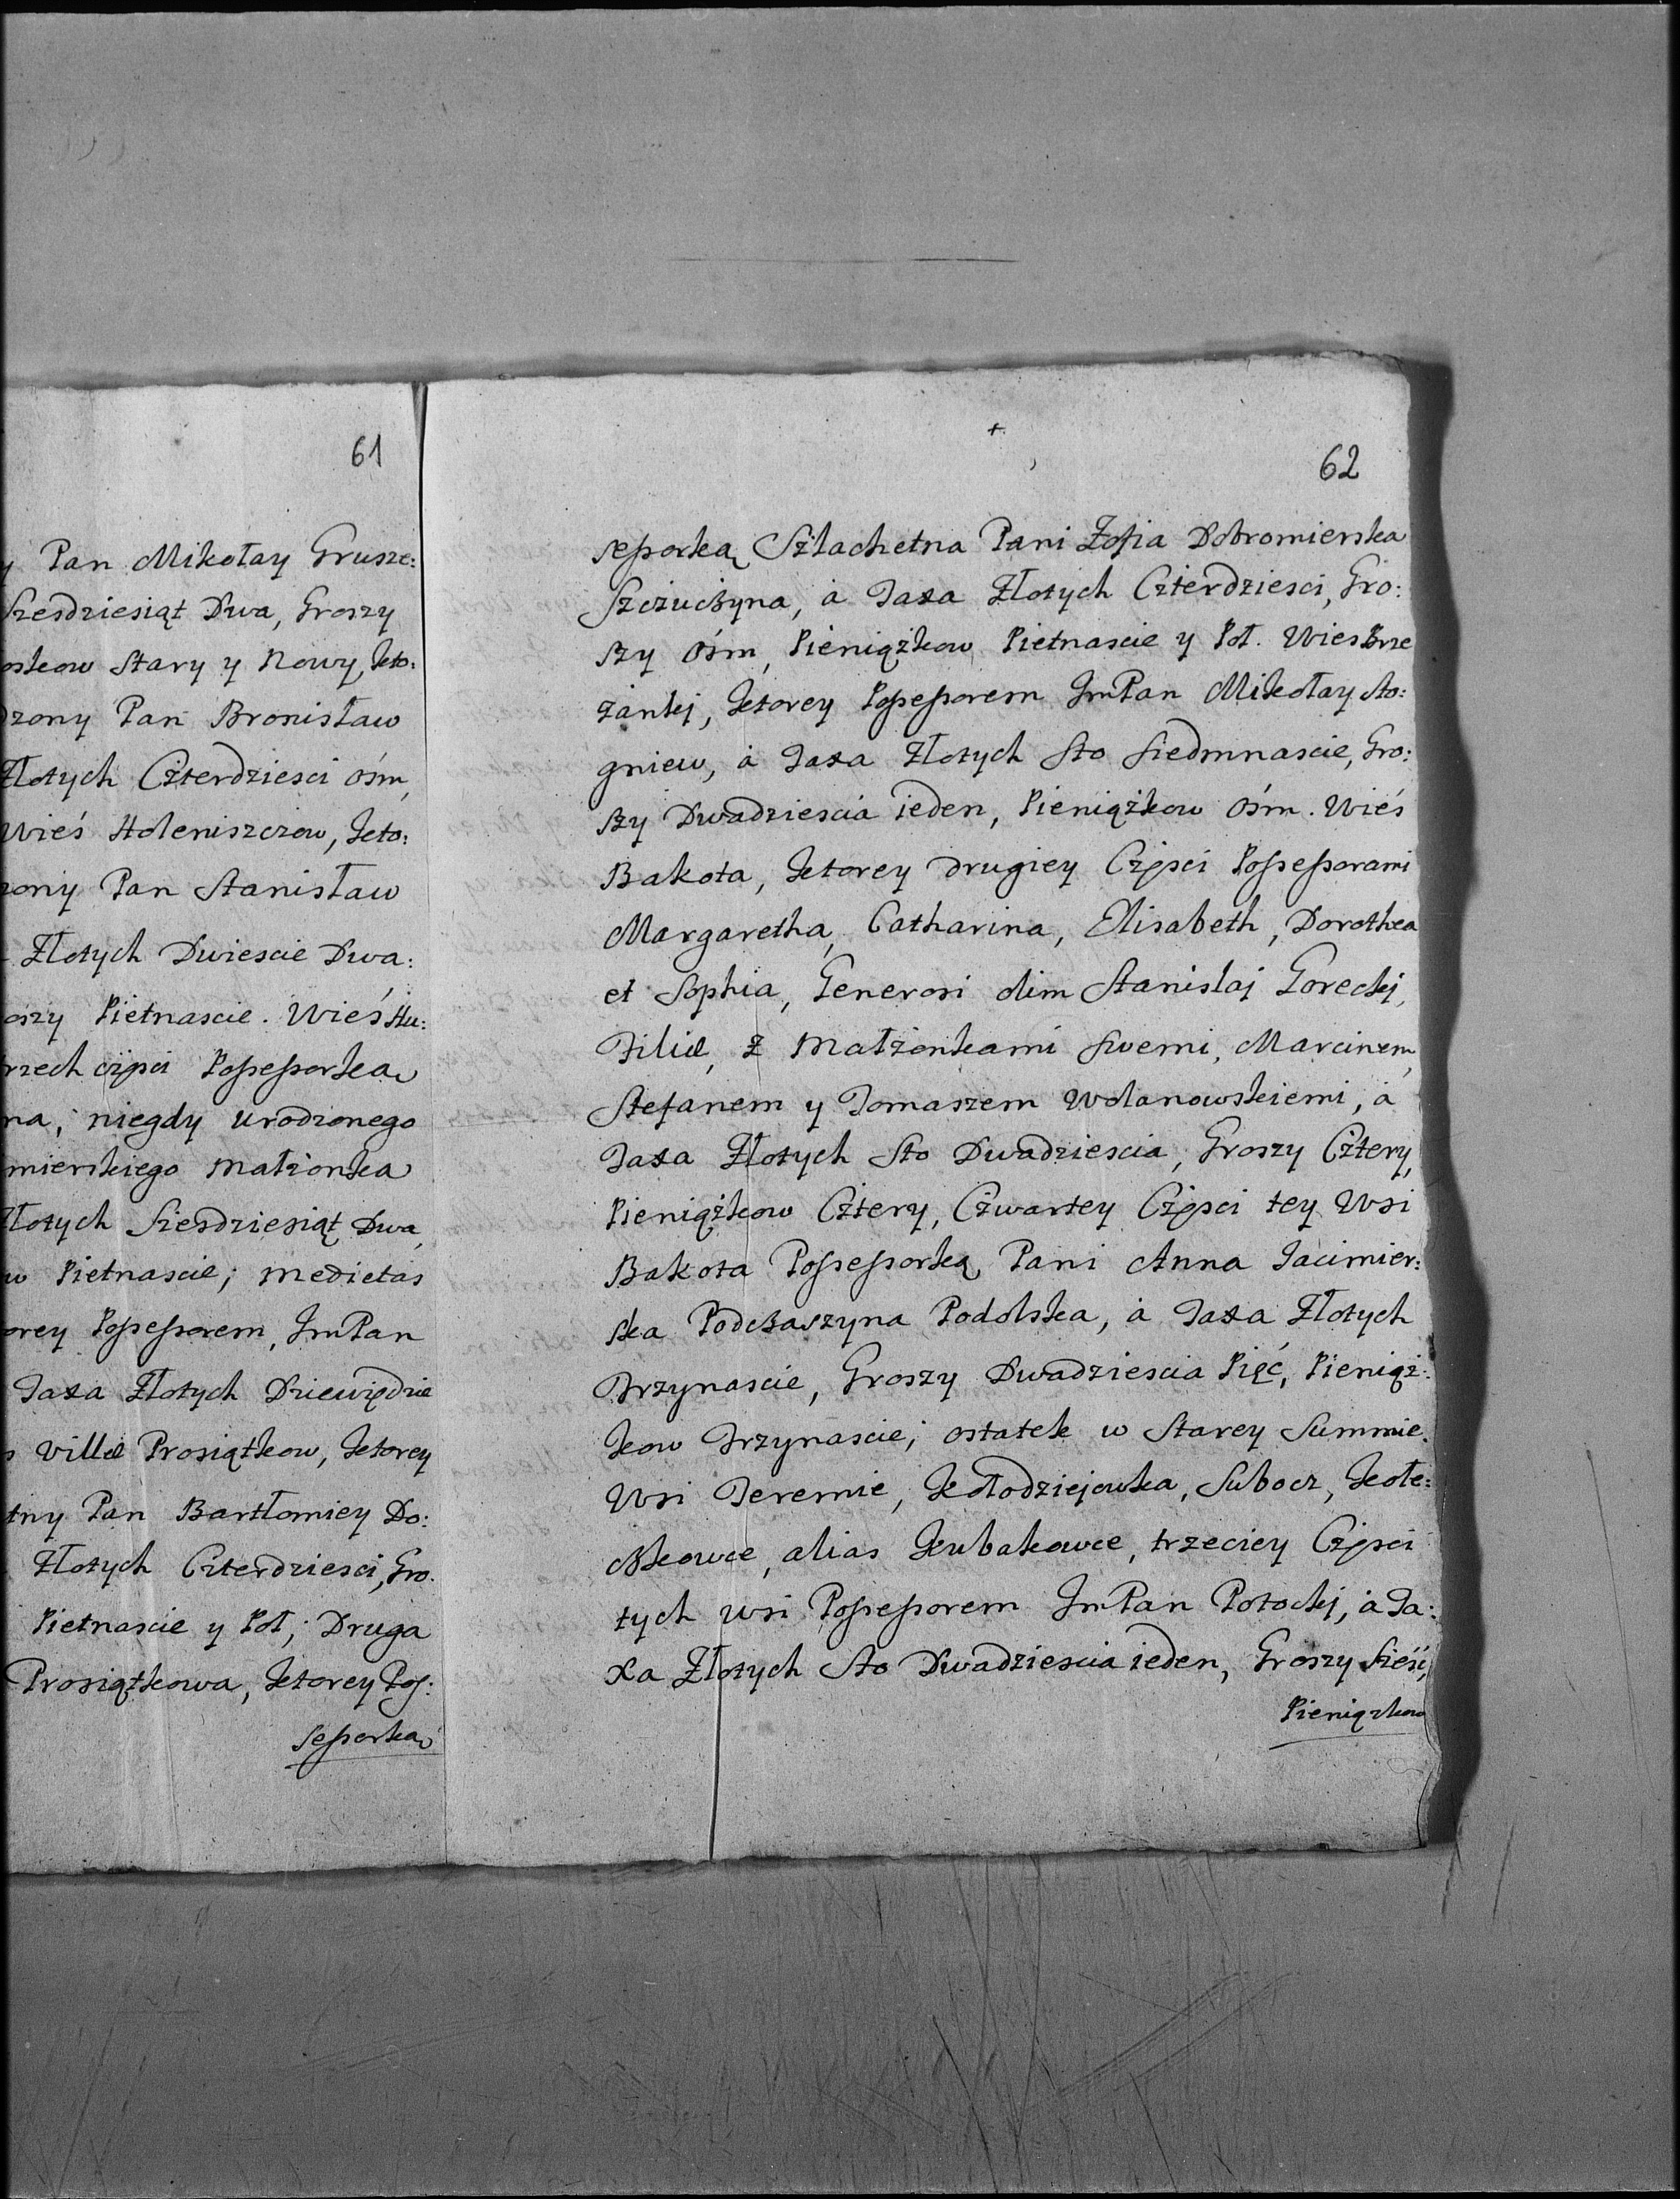 61
y Pan Mikołay Grusze:
Szesdziesiąt Dwa, Groszy
oskow Stary y Nowy, kto:
dzony Pan Bronisław
Złotych Czterdziesci ośm,
Wieś Holeniszczow, kto:
zony Pan Stanisław
Złotych Dwiescie Dwa:
oszy Pietnascie. Wieś Hu:
rzech częsci Possessorka
na, niegdy urodzonego
mierskiego małżonka
Złotych Szesdziesiąt Dwa,
w Pietnascie; medietas
orey Possessorem, ImPan
Taxa Złotych Dziewiędzie
s villæ Prosiątkow, ktorey
tny Pan Bartłomiey Do:
Złotych Czterdziesci, Gro:
Pietnascie y Poł; Druga
Prosiątkowa, ktorey Pos:
sessorka
62
sessorką Szlachetna Pani Zofia Dobromierska
Szczuczyna, à Taxa Złotych Czterdziesci, Gro:
szy ośm, Pieniążkow Pietnascie y Poł. Wies Brze
zanki, ktorey Possessorem ImPan Mikołay Sto:
gniew, à Taxa Złotych Sto Siedmnascie, Gro:
szy Dwadziescia ieden, Pieniążkow ośm. Wieś
Bakota, ktorey drugiey Częsci Possessorami
Margaretha, Catharina, Elisabeth, Dorothea
et Sophia, Generosi olim Stanislaj Gorecki,
Filiæ, z Małżonkami swemi, Marcinem,
Stefanem y Tomaszem Wolanowskiemi, à
Taxa Złotych Sto Dwadziescia, Groszy Cztery,
Pieniążkow Cztery, Czwartey Częsci tey Wsi
Bakota Possessorką Pani Anna Jacimier:
ska Podczaszyna Podolska, à Taxa Złotych
Trzynascie, Groszy Dwadziescia Pięć, Pieniąż:
kow Trzynascie; ostatek w Starey Summie.
Wsi Jeremie, Kołodziejowka, Subocz, Kołe:
czkowce, alias Kubakowce, trzeciey Częsci
tych wsi Possessorem ImPan Potocki, à Ta:
xa Złotych Sto Dwadziescia ieden, Groszy Sześć,
Pieniązkow